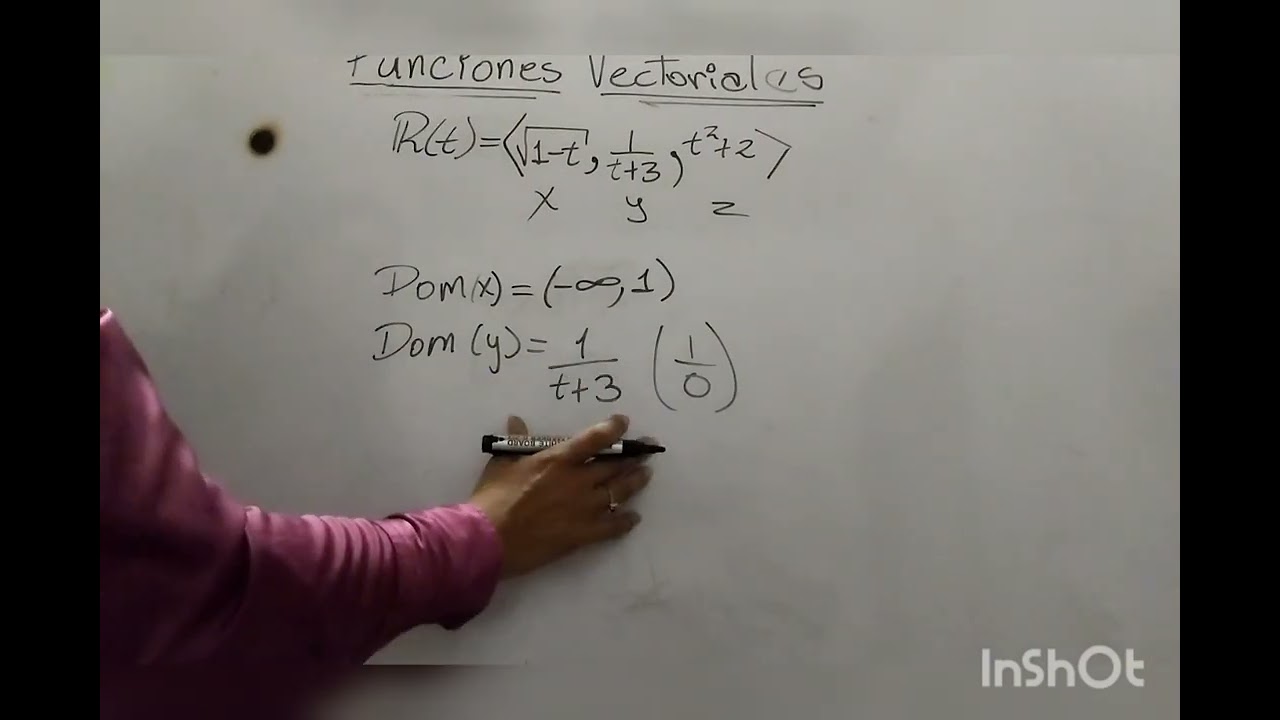 Funciones Vectoriales
R(t)=⟨√1-t, 1/t+3, t²+2⟩
x y z
Dom(x)=(-∞,1)
Dom(y)=1/t+3 (1/0)
BOARD
InShOt